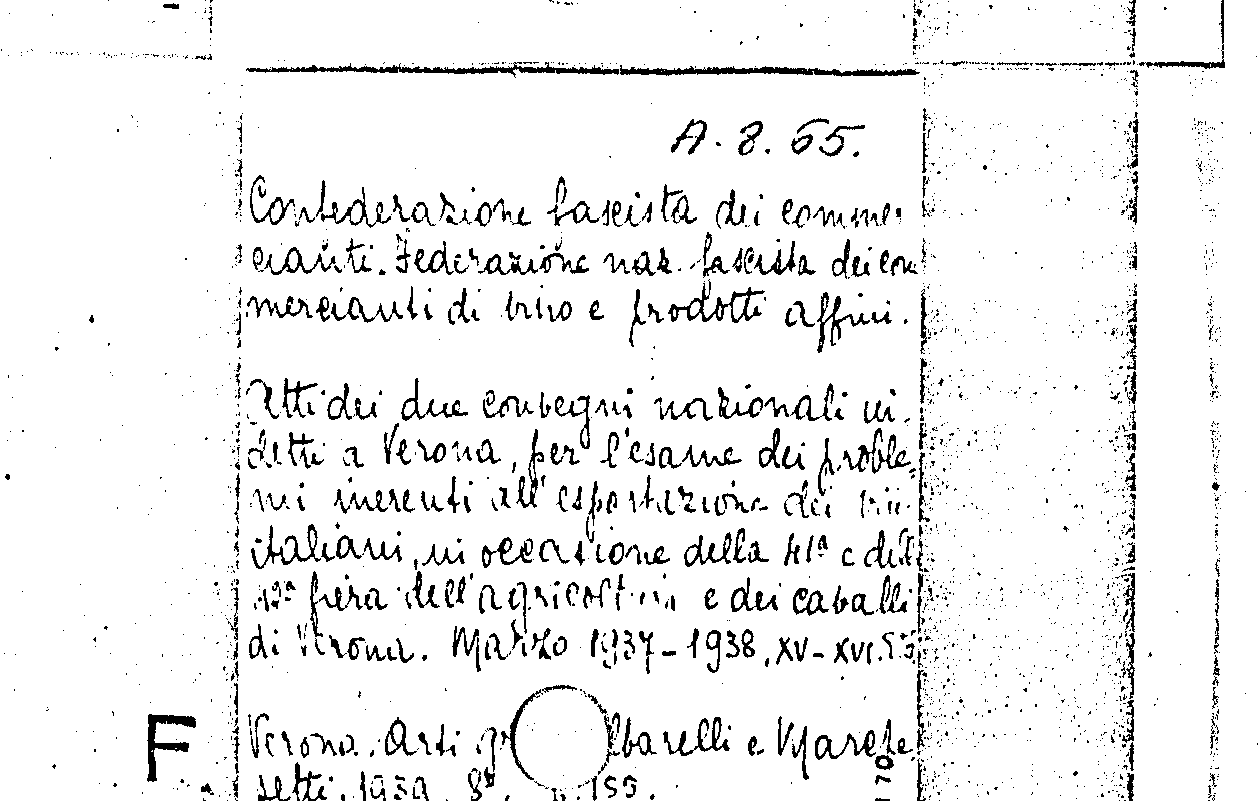 A. 8. 65.
Confederazione fascista dei commer
cianti. Federazione naz. fascista dei com
mercianti di vino e prodotti affini.
Atti dei due convegni nazionali in-
detti a Verona, per l'esame dei proble-
mi inerenti all'esportazione dei vini
italiani, in occasione della 41ª e della
42ª fiera dell'agricoltura e dei cavalli
di Verona. Marzo 1937-1938, XV-XVI.
Verona. Arti gr lbarelli e Marche-
setti. 1939. 8º. p. 155.
F
170